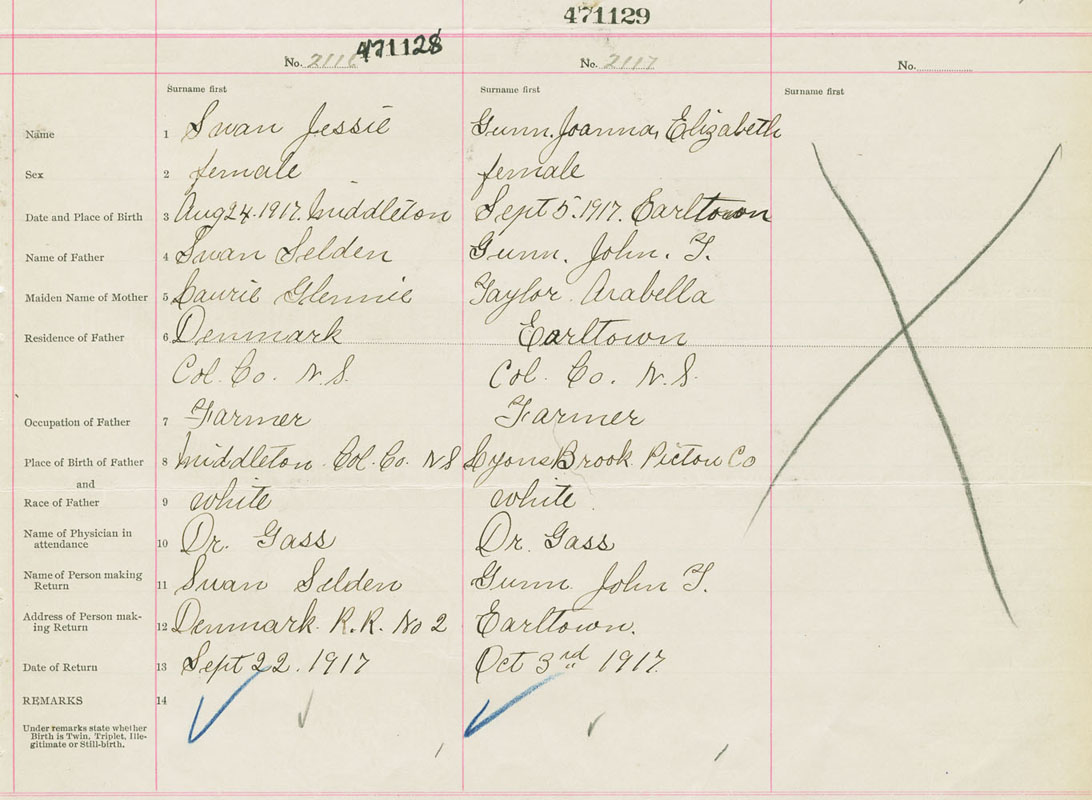 471129
471128
No. 2116 No. 2117 No.
Surname first Surname first Surname first
Name 1 Swan Jessie Gunn. Joanna, Elizabeth
Sex 2 female female
Date and Place of Birth 3 Aug 24. 1917. Middleton Sept 5. 1917. Earltown
Name of Father 4 Swan Selden Gunn. John. F.
Maiden Name of Mother 5 Laurie Glennie Taylor. Arabella
Residence of Father 6 Denmark Earltown
Col. Co. N.S. Col. Co. N.S.
Occupation of Father 7 Farmer Farmer
Place of Birth of Father 8 Middleton. Col. Co. NS Lyons Brook Pictou Co
and
Race of Father 9 white white
Name of Physician in
attendance 10 Dr. Gass Dr. Gass
Name of Person making
Return 11 Swan Selden Gunn John F.
Address of Person mak-
ing Return 12 Denmark R.R. No 2 Earltown.
Date of Return 13 Sept 22. 1917 Oct 3rd 1917.
REMARKS 14
Under remarks state whether
Birth is Twin, Triplet, Ille-
gitimate or Still-birth.